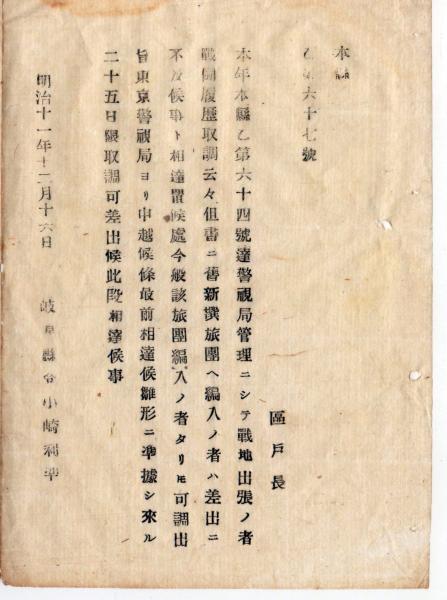 本縣
乙第六十七號
區戸長
本年本縣乙第六十四號達警視局管理ニシテ戰地出張ノ者
戰鬪履歴取調云々但書ニ舊新撰旅團ヘ編入ノ者ハ差出ニ
不及候事ト相達置候處今般該旅團編入ノ者タリ𪜈可調出
旨東京警視局ヨリ申越候條最前相達候雛形ニ準據シ來ル
二十五日限取調可差出候此段相達候事
明治十一年十二月十六日
岐阜縣令小崎利準